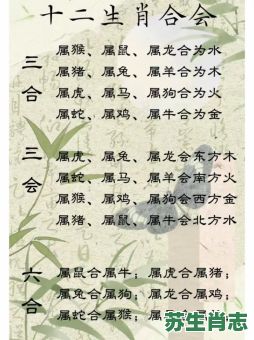 十二生肖合会
三合
属猴、属鼠、属龙合为水
属猪、属兔、属羊合为木
属虎、属马、属狗合为火
属蛇、属鸡、属牛合为金
三会
属虎、属兔、属龙会东方木
属蛇、属马、属羊会南方火
属猴、属鸡、属狗会西方金
属猪、属鼠、属牛会北方水
六合
属鼠合属牛；属虎合属猪；
属兔合属狗；属龙合属鸡；
属蛇合属猴；
苏生肖志